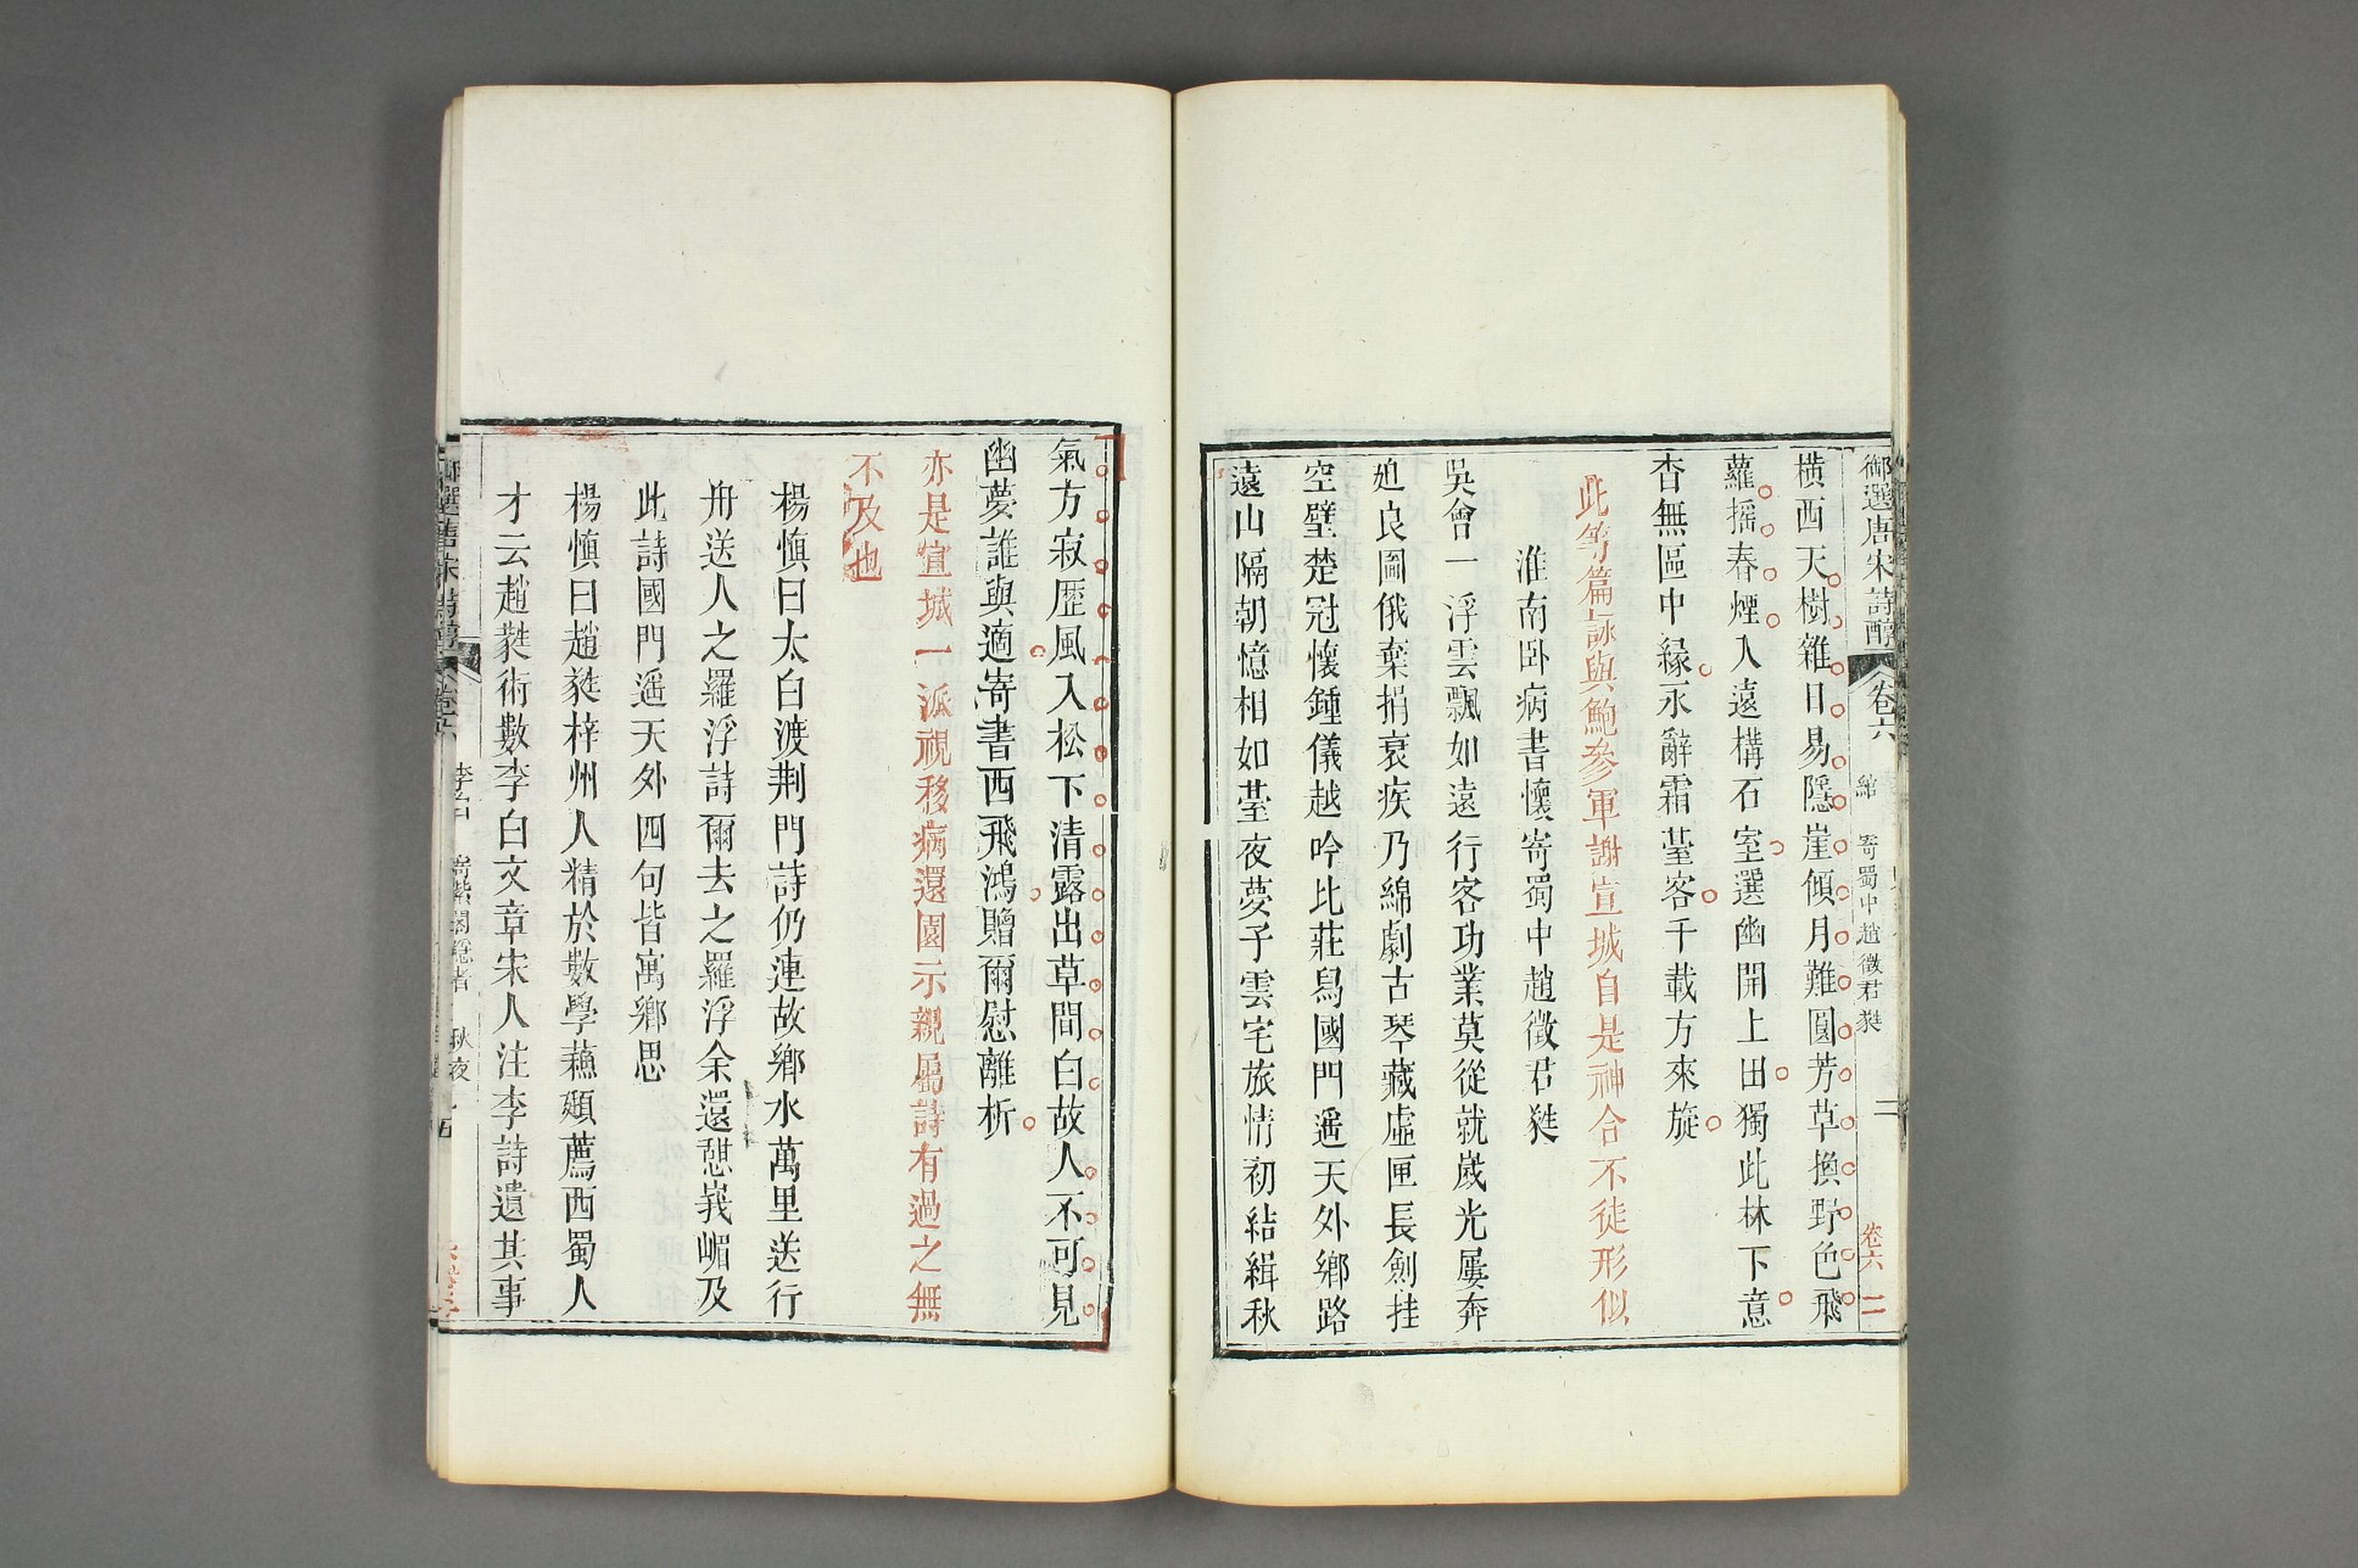 御選唐宋詩醇 卷六 綰 寄蜀中趙徵君蕤 二 卷六 二
橫西天樹雜日易隱崖傾月難圓芳草換野色飛
蘿搖春煙入遠構石室選幽開上田獨此林下意
杳無區中緣永辭霜臺客千載方來旋
此等篇詠與鮑參軍謝宣城自是神合不徒形似
淮南卧病書懷寄蜀中趙徵君蕤
吳會一浮雲飄如遠行客功業莫從就歲光屢奔
迫良圖俄棄捐衰疾乃綿劇古琴藏虛匣長劍挂
空壁楚冠懷鍾儀越吟比莊舄國門遥天外鄉路
遠山隔朝憶相如臺夜夢子雲宅旅情初結緝秋
氣方寂歷風入松下清露出草間白故人不可見
幽夢誰與適寄書西飛鴻贈爾慰離析
亦是宣城一派視移病還園示親屬詩有過之無
不及也
楊慎曰太白渡荆門詩仍連故鄉水萬里送行
舟送人之羅浮詩爾去之羅浮余還憩峩嵋及
此詩國門遥天外四句皆寓鄉思
楊慎曰趙蕤梓州人精於數學蘓頲薦西蜀人
才云趙蕤術數李白文章宋人注李詩遺其事